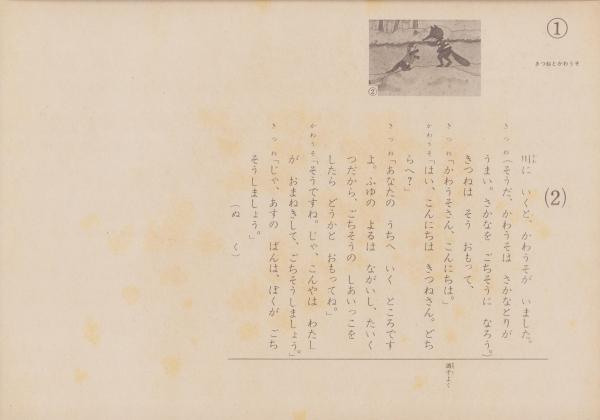 ①
きつねとかわうそ
②
(2)
川に　いくと、かわうそが　いました。
かわ
きつね(そうだ、かわうそは　さかなとりが
うまい。さかなを　ごちそうに　なろう。)
きつねは　そう　おもって、
きつね「かわうそさん、こんにちは。」
かわうそ「はい、こんにちは　きつねさん。どち
らへ？」
きつね「あなたの　うちへ　いく　ところです
よ。ふゆの　よるは　ながいし、たいく
つだから、ごちそうの　しあいっこを
したら　どうかと　おもってね。」
かわうそ「そうですね。じゃ、こんやは　わたし
が　おまねきして、ごちそうしましょう。」
きつね「じゃ、あすの　ばんは、ぼくが　ごち
そうしましょう。」
(ぬく)
調子よく